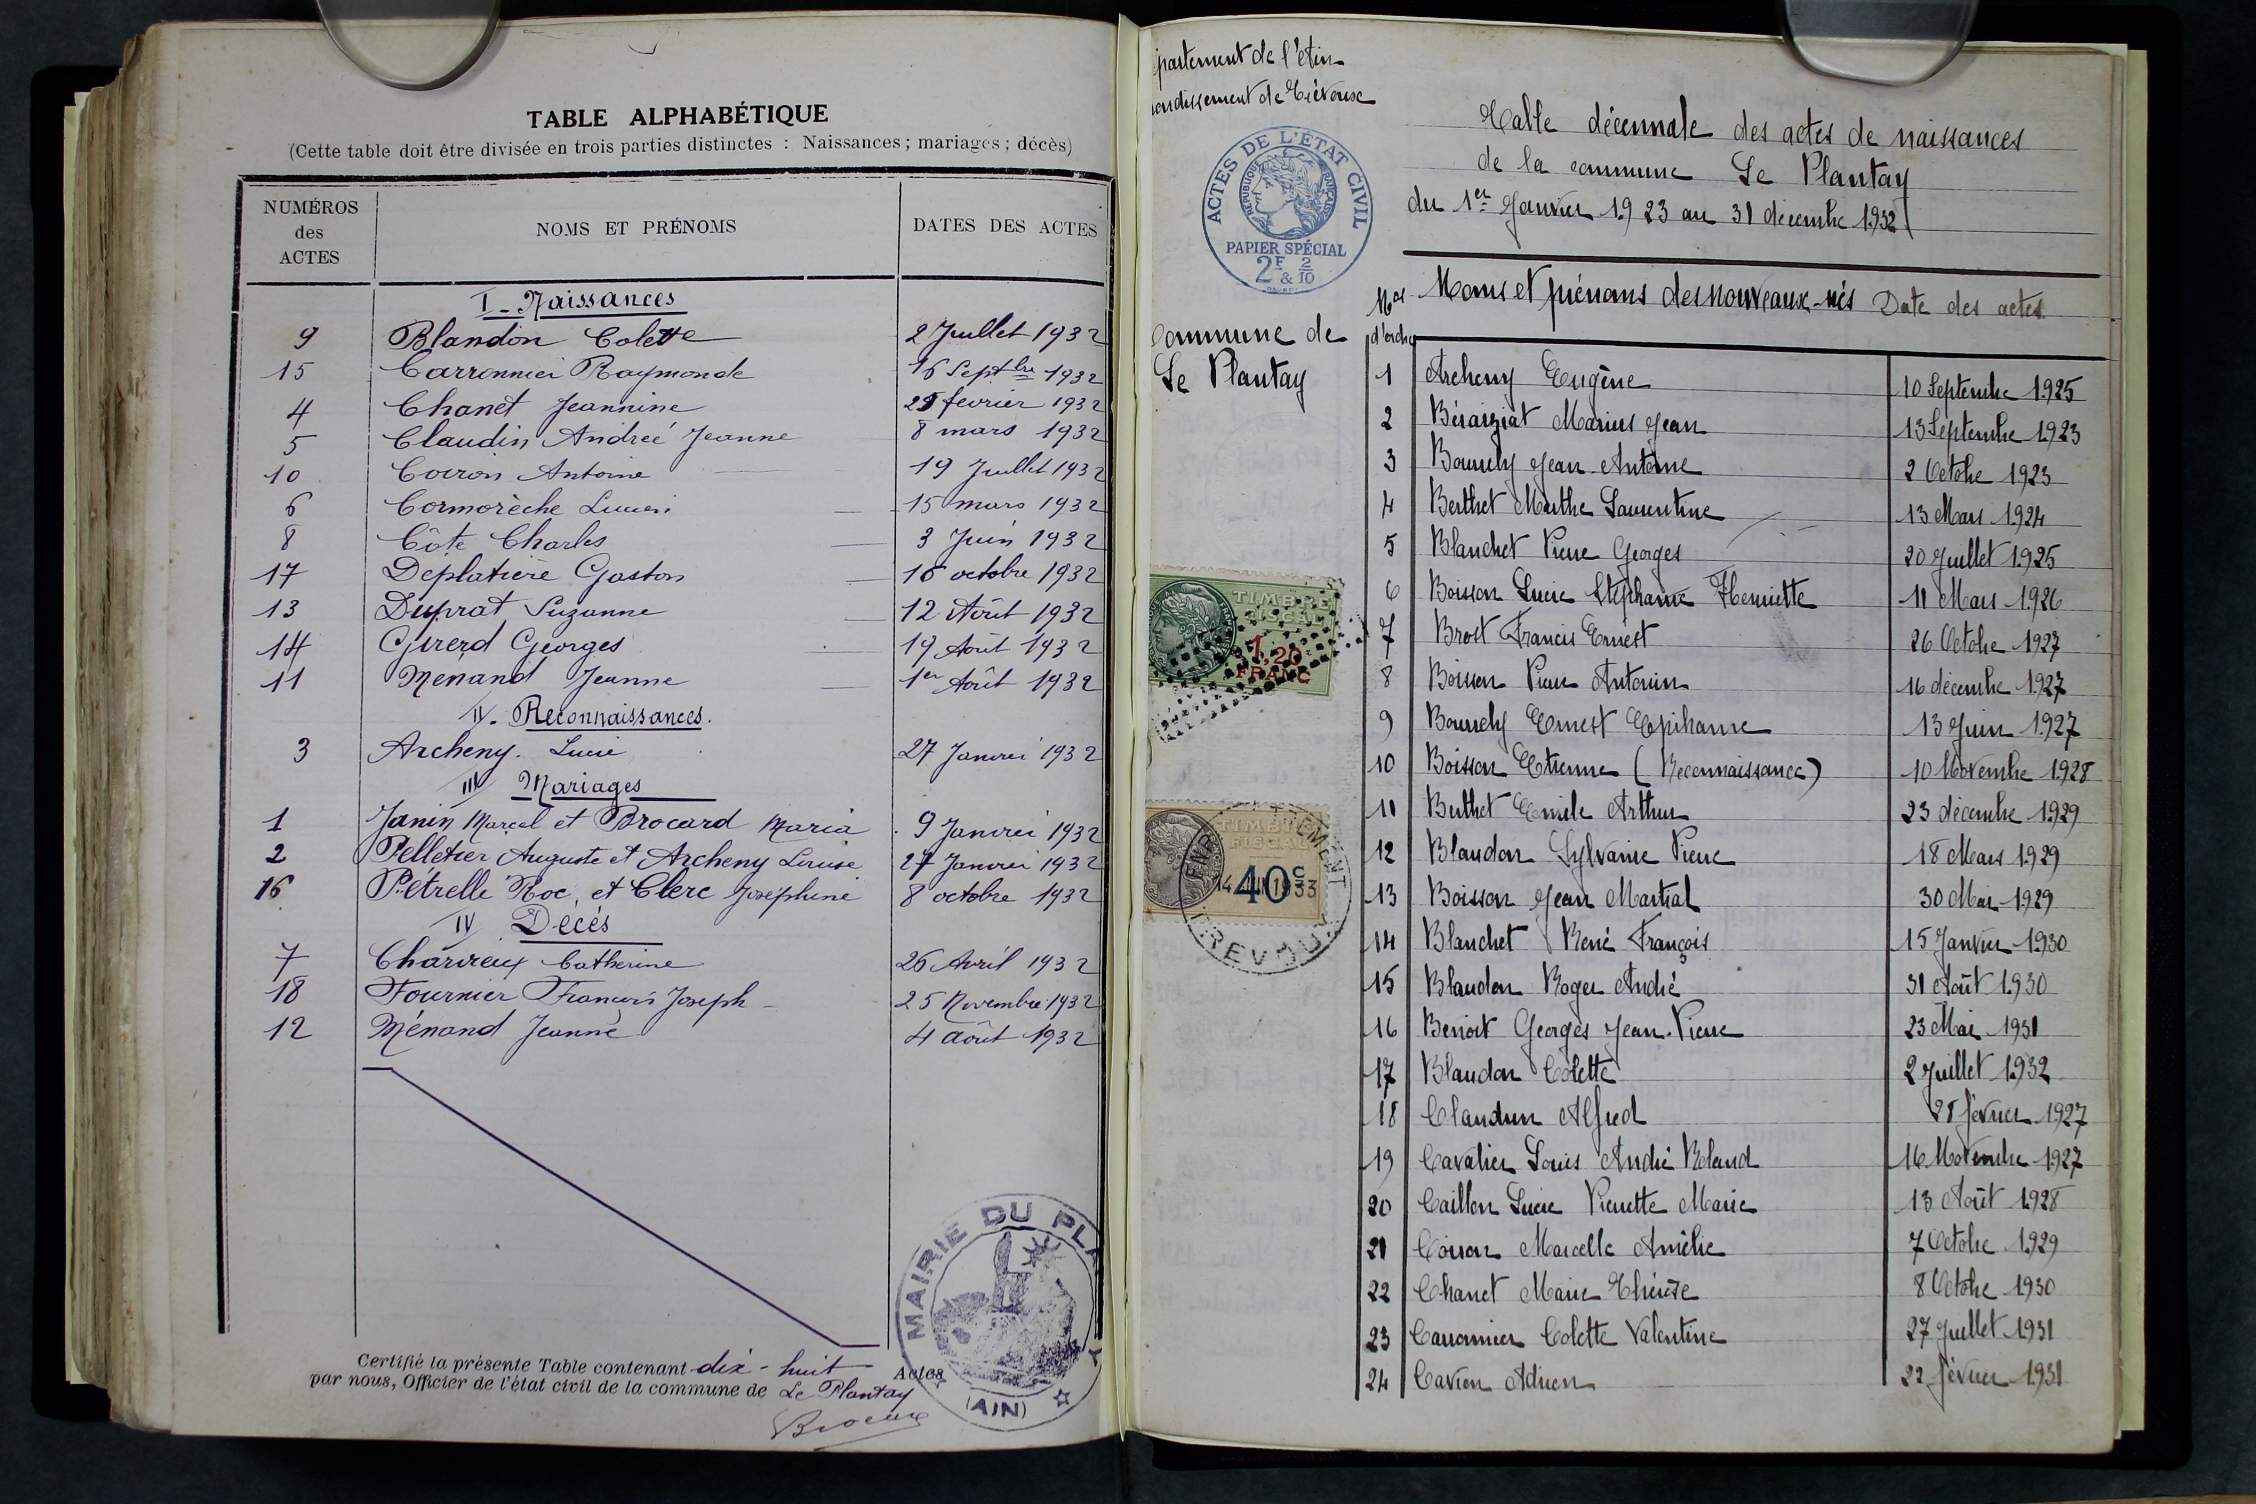 TABLE ALPHABÉTIQUE
(Cette table doit être divisée en trois parties distinctes : Naissances ; mariages ; décès)
NUMÉROS des ACTES NOMS ET PRÉNOMS DATES DES ACTES
I - Naissances
9 Blandon Colette 2 Juillet 1932
15 Carronnier Raymonde 16 Septbre 1932
4 Chanet Jeannine février 1932
5 Claudin Andreé Jeanne 8 mars 1932
10 Coiron Antoine 19 Juillet 1932
6 Cormorèche Lucien 15 mars 1932
8 Côte Charles 3 Juin 1932
17 Déplatière Gaston 16 octobre 1932
13 Duprat Suzanne 12 Août 1932
14 Girerd Georges 19 Août 1932
11 Ménand Jeanne 1er Août 1932
II - Reconnaissances.
3 Archeny Lucie 27 Janvier 1932
III Mariages
1 Janin Marcel et Brocard Maria 9 Janvier 1932
2 Pelletier Auguste et Archeny Louise 27 Janvier 1932
16 Pétrelle Roc et Clerc Joséphine 8 octobre 1932
IV Décès
7 Charvieux Catherine 26 Avril 1932
18 Fournier François Joseph 25 Novembre 1932
12 Ménand Jeanne 4 août 1932
Certifié la présente Table contenant dix-huit Actes
par nous, Officier de l'état civil de la commune de Le Plantay
Brocard
MAIRIE DU PLA
(AIN)
partement de l'Ain
ondissement de Trévoux
ACTES DE L'ÉTAT CIVIL
RÉPUBLIQUE FRANÇAISE
PAPIER SPÉCIAL
2F & 2/10
Commune de
Le Plantay
TIMBRE
FISCAL
1,20
FRANC
TIMBRE
FISCAL
40c
14 1933
TREVOUX
Table décennale des actes de naissances
de la commune Le Plantay
du 1er Janvier 1923 au 31 décembre 1932
Nos d'ordre Noms et prénoms des nouveaux-nés Date des actes
1 Archeny Eugène 10 Septembre 1925
2 Béraiziat Marius Jean 13 Septembre 1923
3 Bourrely Jean-Antoine 2 Octobre 1923
4 Berthet Marthe Laurentine 13 Mars 1924
5 Blanchet Pierre Georges 20 Juillet 1925
6 Boisson Lucie Stéphanie Henriette 11 Mars 1926
7 Brost Francis Ernest 26 Octobre 1927
8 Boisson Pierre Antonin 16 décembre 1927
9 Bourrely Ernest Epiphane 13 Juin 1927
10 Boisson Etienne (Reconnaissance) 10 Novembre 1928
11 Berthet Emile Arthur 23 décembre 1929
12 Blandon Sylvaine Pierre 18 Mars 1929
13 Boisson Jean Martial 30 Mai 1929
14 Blanchet René François 15 Janvier 1930
15 Blandon Roger André 31 Août 1930
16 Benoit Georges Jean-Pierre 23 Mai 1931
17 Blandon Colette 2 Juillet 1932
18 Claudin Alfred 28 février 1927
19 Cavalier Louis André Roland 16 Novembre 1927
20 Caillon Lucie Pierrette Marie 13 Août 1928
21 Coiron Marcelle Amélie 7 Octobre 1929
22 Chanet Marie Thérèse 8 Octobre 1930
23 Carronnier Colette Valentine 27 Juillet 1931
24 Cavien Adrien 22 février 1931